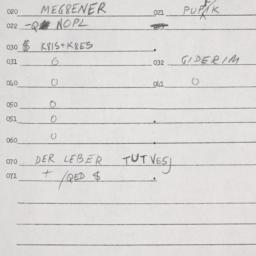 020 MEGRENER 021 PUPIK
022 NOPL
030 $ KRIS+KRES
031 0 032 GIDERIM
040 0 041 0
050 0
051 0
060 0
070 DER LEBER TUTVESJ
071 + /QED $